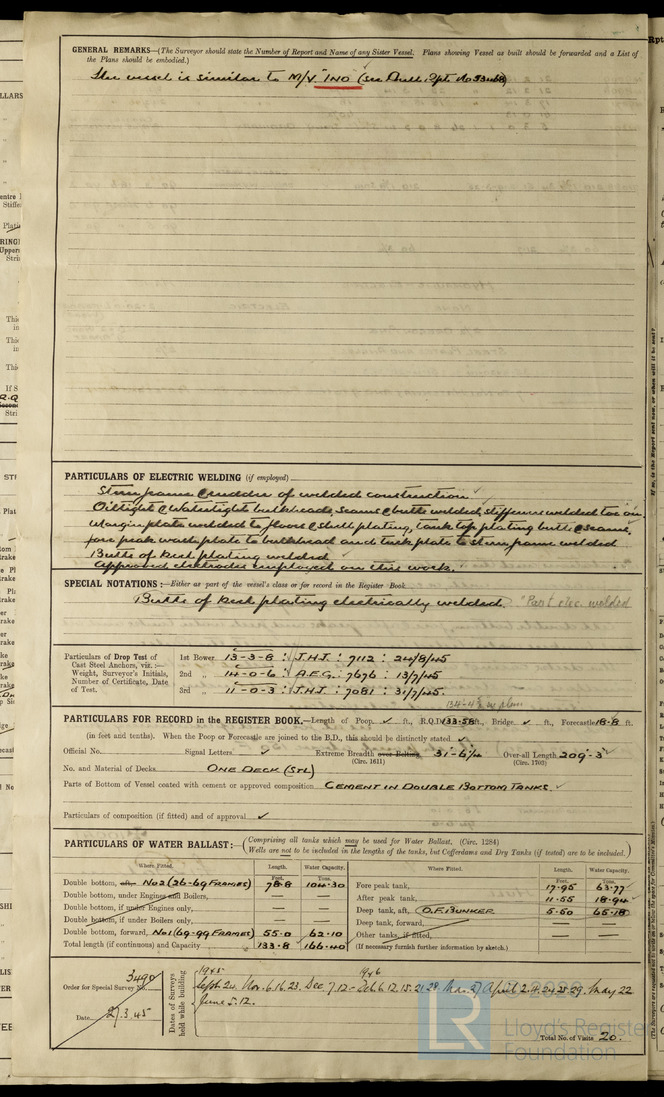 GENERAL REMARKS—(The Surveyor should state the Number of Report and Name of any Sister Vessel. Plans showing Vessel as built should be forwarded and a List of
the Plans should be embodied.)
This vessel is similar to M/V. "INO"
PARTICULARS OF ELECTRIC WELDING (if employed)
Sternframe & rudder of welded construction
Oiltight & Watertight bulkheads, seams & butts welded, stiffeners welded too on.
Margin plate welded to floors & shell plating, tank top plating butts & seams,
fore peak wash plate to bulkhead and tuck plate to stern frame welded
Butts of keel plating welded
Approved electrodes employed on this work.
SPECIAL NOTATIONS:—Either as part of the vessel's class or for record in the Register Book
Butts of keel plating electrically welded. "Part elec. welded
Particulars of Drop Test of
Cast Steel Anchors, viz.:—
Weight, Surveyor's Initials,
Number of Certificate, Date
of Test.
1st Bower 13-3-8 : J.H.J. : 7112 : 24/8/45
2nd „ 14-0-6 : A.F.G. : 7676 : 13/7/45
3rd „ 11-0-3 : J.H.J. : 7081 : 31/7/45.
PARTICULARS FOR RECORD in the REGISTER BOOK.—Length of Poop ✓ ft., R.Q.D. 133·58 ft., Bridge ✓ ft., Forecastle 18·8 ft.
(in feet and tenths). When the Poop or Forecastle are joined to the B.D., this should be distinctly stated ✓
Official No. Signal Letters ✓ Extreme Breadth over Belting 31'-6¼" Over-all Length 209'-3"
(Circ. 1611) (Circ. 1703)
No. and Material of Decks. ONE DECK (STL)
Parts of Bottom of Vessel coated with cement or approved composition CEMENT IN DOUBLE BOTTOM TANKS ✓
Particulars of composition (if fitted) and of approval ✓
PARTICULARS OF WATER BALLAST:— (Comprising all tanks which may be used for Water Ballast, (Circ. 1284)
Wells are not to be included in the lengths of the tanks, but Cofferdams and Dry Tanks (if tested) are to be included.)
Where Fitted. Length. Water Capacity. Where Fitted. Length. Water Capacity.
Feet. Tons. Feet. Tons.
Double bottom, aft, No 2 (26-69 FRAMES) 78·8 104·30 Fore peak tank, 17·95 63·77
Double bottom, under Engines and Boilers, — — After peak tank, 11·55 18·94
Double bottom, if under Engines only, — — Deep tank, aft, O.F. BUNKER 5·50 65·18
Double bottom, if under Boilers only, — — Deep tank, forward, — —
Double bottom, forward, No 1 (69-99 FRAMES) 55·0 62·10 Other tanks, if fitted, — —
Total length (if continuous) and Capacity 133·8 166·40 (If necessary furnish further information by sketch.)
Order for Special Survey No. 3490
Date 27.3.45
Dates of Surveys held while building
1945 1946
Sept. 24. Nov. 6.16.23. Dec. 7.12 - Feb. 6.12.15.21.28. Mar. 27 April 2.4.24.25.29. May 22
June 5.12.
Total No. of Visits 20.
Lloyd's Register
Foundation
LR